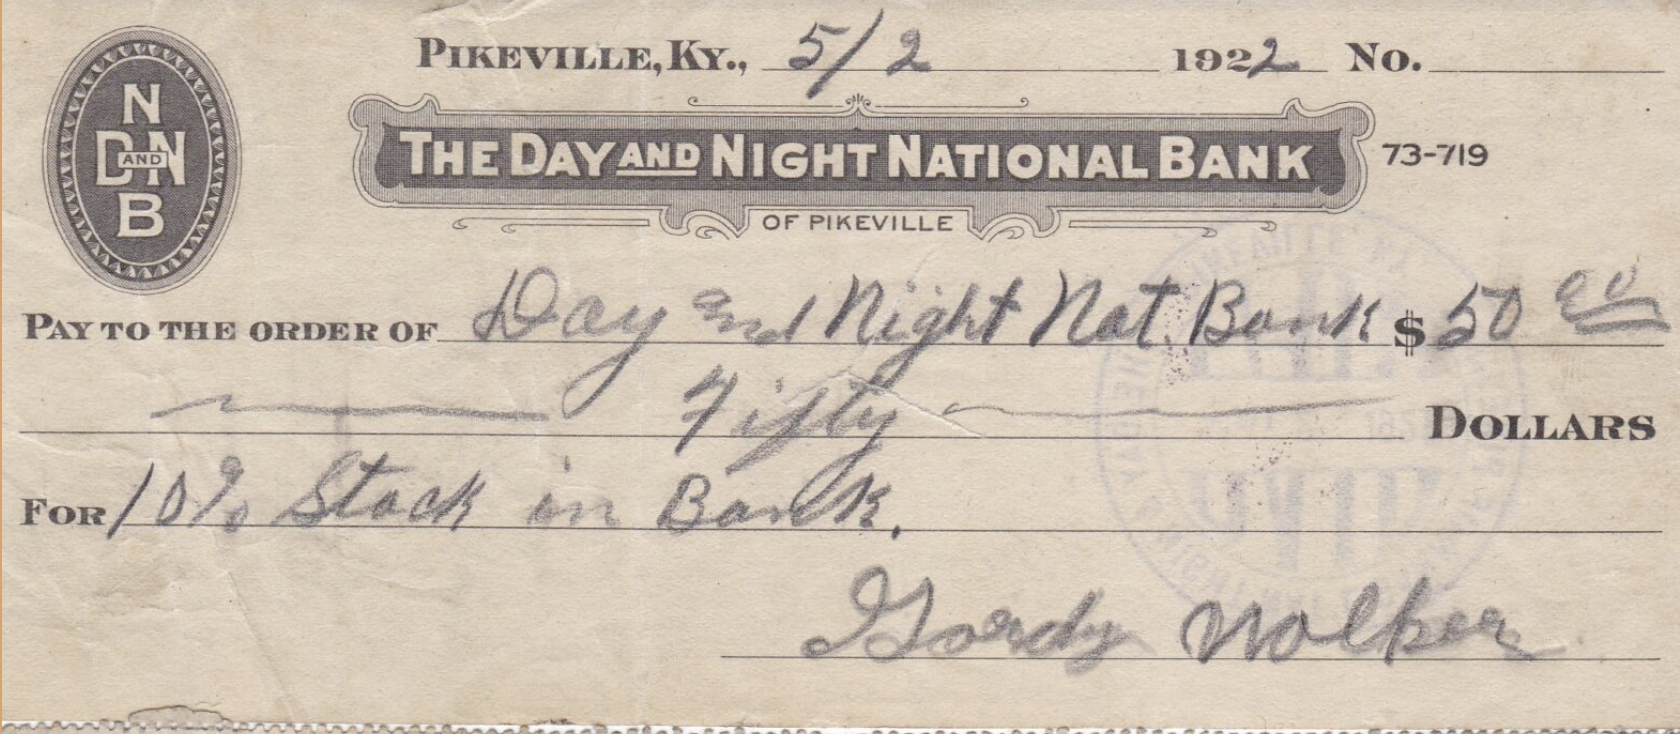 PIKEVILLE, KY., 5/2 1922 No.
N
D AND N
B
THE DAY AND NIGHT NATIONAL BANK 73-719
OF PIKEVILLE
PAY TO THE ORDER OF Day and Night Nat. Bank $ 50 00
Fifty DOLLARS
FOR 10% Stock in Bank.
Gordy Wolker